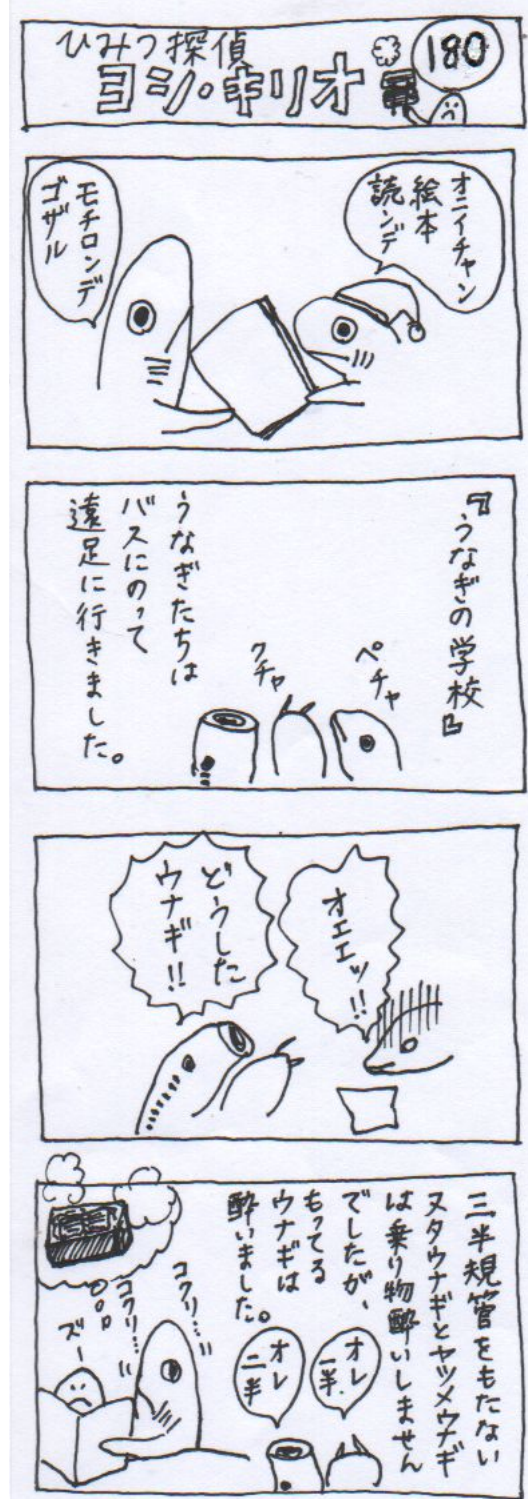 ひみつ探偵
ヨシ・キリオ
180
オニイチャン
絵本
読ンデ
モチロンデ
ゴザル
『うなぎの学校』
ペチャ
クチャ
うなぎたちは
バスにのって
遠足に行きました。
オエエッ!!
どうした
ウナギ!!
三半規管をもたない
ヌタウナギとヤツメウナギ
は乗り物酔いしません
でしたが、
もってる
ウナギは
酔いました。
オレ
一半.
オレ
二半
コクリ…
コクリ…
ズー